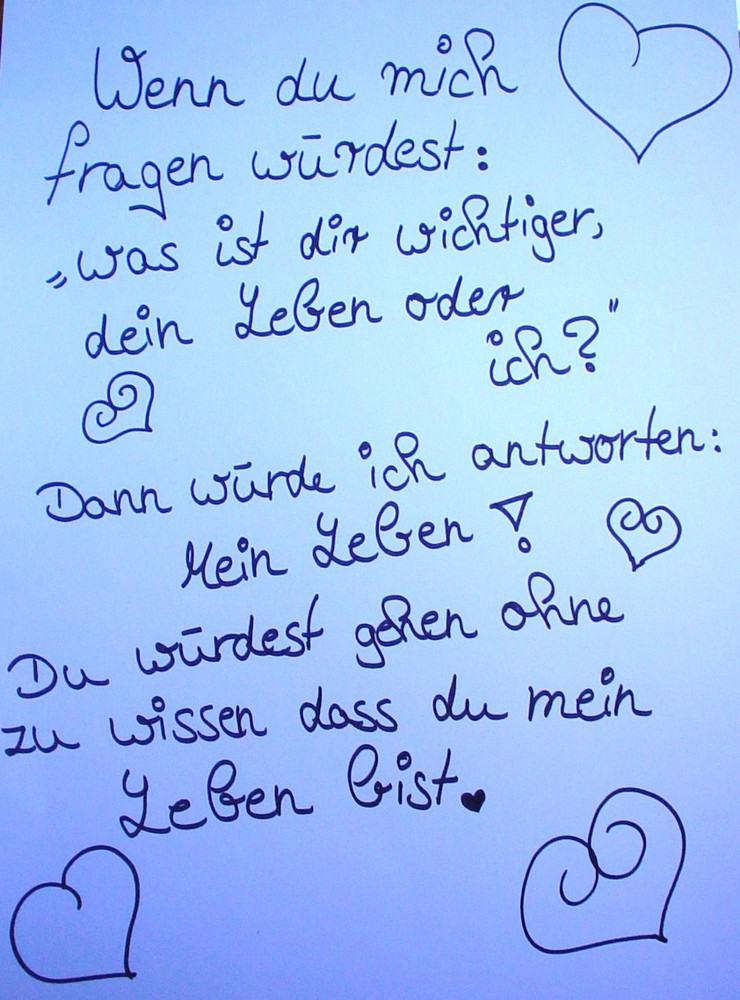 Wenn du mich
fragen würdest:
„was ist dir wichtiger,
dein Leben oder
ich?"
Dann würde ich antworten:
Mein Leben!
Du würdest gehen ohne
zu wissen dass du mein
Leben bist.